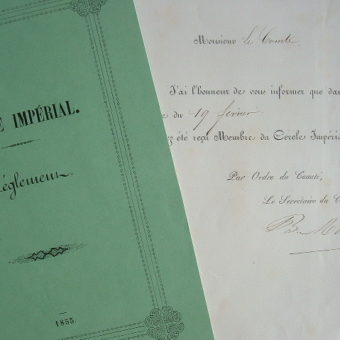 E IMPÉRIAL.
Règlement
1855
Monsieur le Comte
J'ai l'honneur de vous informer que da
e du 19 février
ez été reçu Membre du Cercle Impéri
Par Ordre du Comité,
Le Secrétaire du C